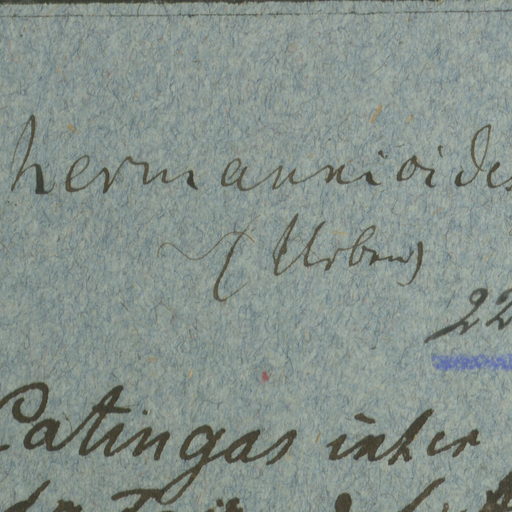 hermannioides
(Urban)
22
Catingas inter